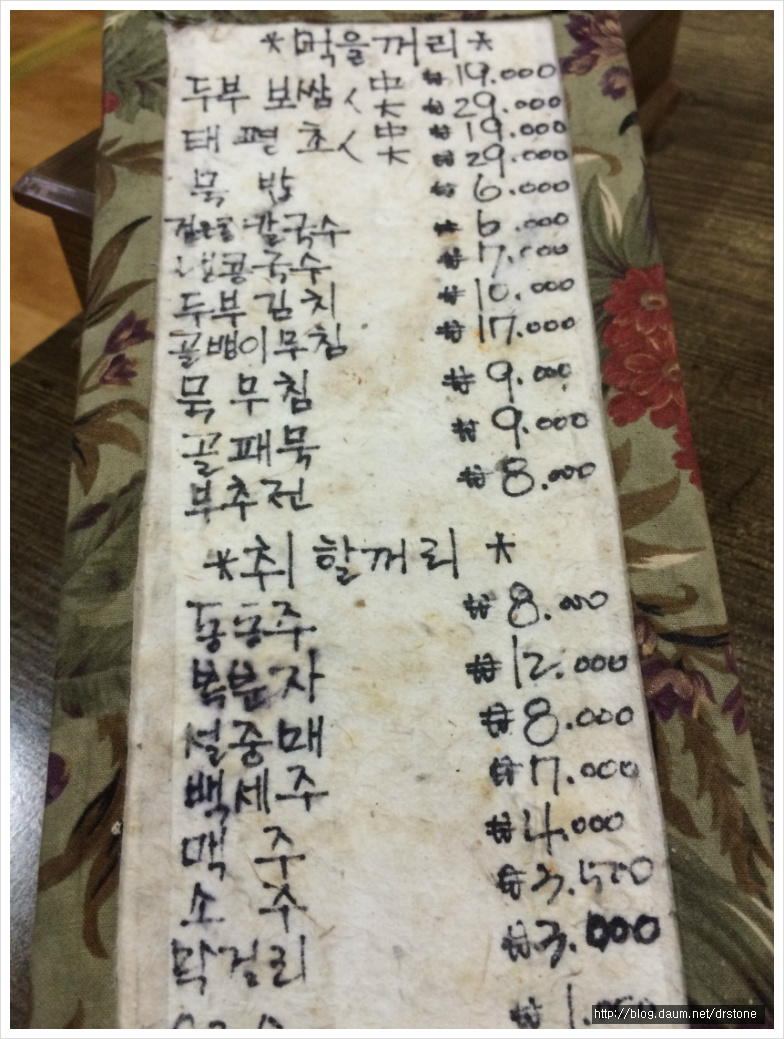 *먹을꺼리*
두부 보쌈 中 ₩19.000
大 ₩29.000
태평초 中 ₩19.000
大 ₩29.000
묵밥 ₩6.000
칼국수 ₩6.000
냉콩국수 ₩7.000
두부김치 ₩10.000
골뱅이무침 ₩17.000
묵무침 ₩9.000
골패묵 ₩9.000
부추전 ₩8.000
*취할꺼리*
동동주 ₩8.000
복분자 ₩12.000
설중매 ₩8.000
백세주 ₩7.000
맥주 ₩4.000
소주 ₩3.500
막걸리 ₩3.000
http://blog.daum.net/drstone